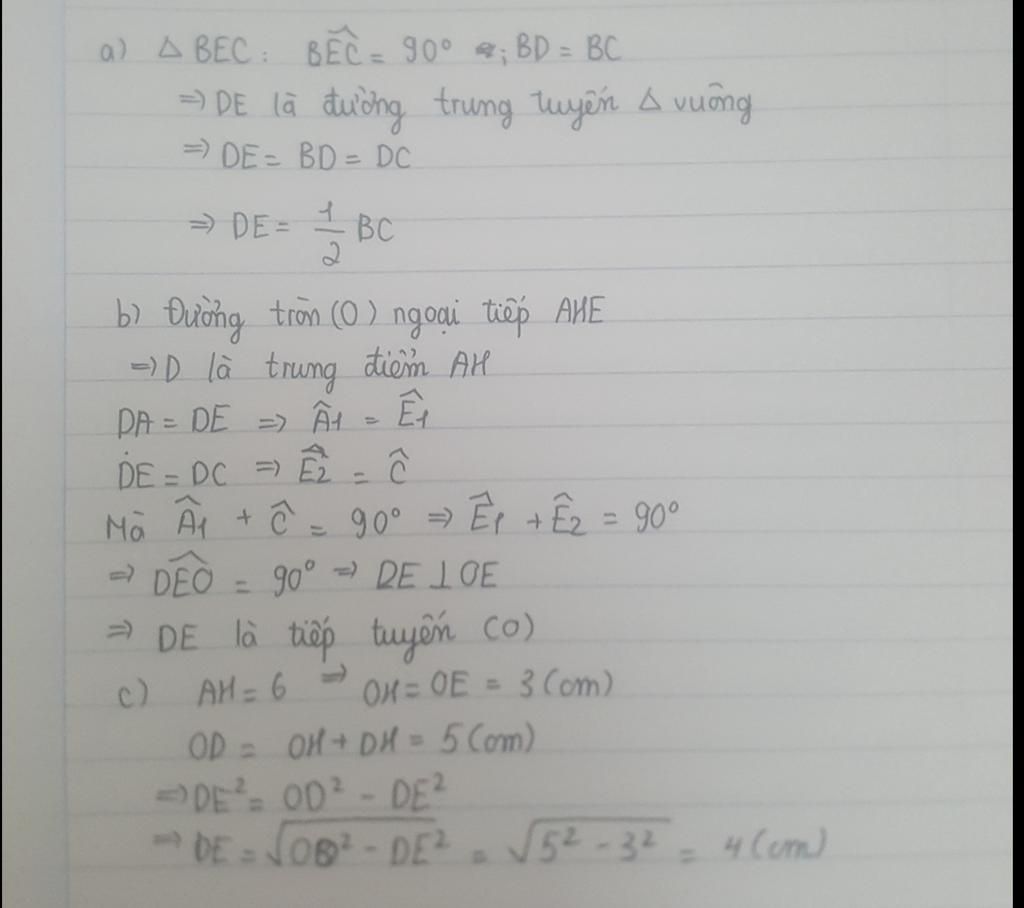 a) Δ BEC : BÊC = 90° ; BD = BC
⇒ DE là đường trung tuyến Δ vuông
⇒ DE = BD = DC
⇒ DE = 1/2 BC
b) Đường tròn (O) ngoại tiếp AHE
⇒ D là trung điểm AH
DA = DE ⇒ Â1 = Ê1
DE = DC ⇒ Ê2 = Ĉ
Mà Â1 + Ĉ = 90° ⇒ Ê1 + Ê2 = 90°
⇒ DÊO = 90° ⇒ DE ⊥ OE
⇒ DE là tiếp tuyến (O)
c) AH = 6 ⇒ OH = OE = 3 (cm)
OD = OH + DH = 5 (cm)
⇒ DE² = OD² - DE²
⇒ DE = √(OD² - DE²) = √(5² - 3²) = 4 (cm)